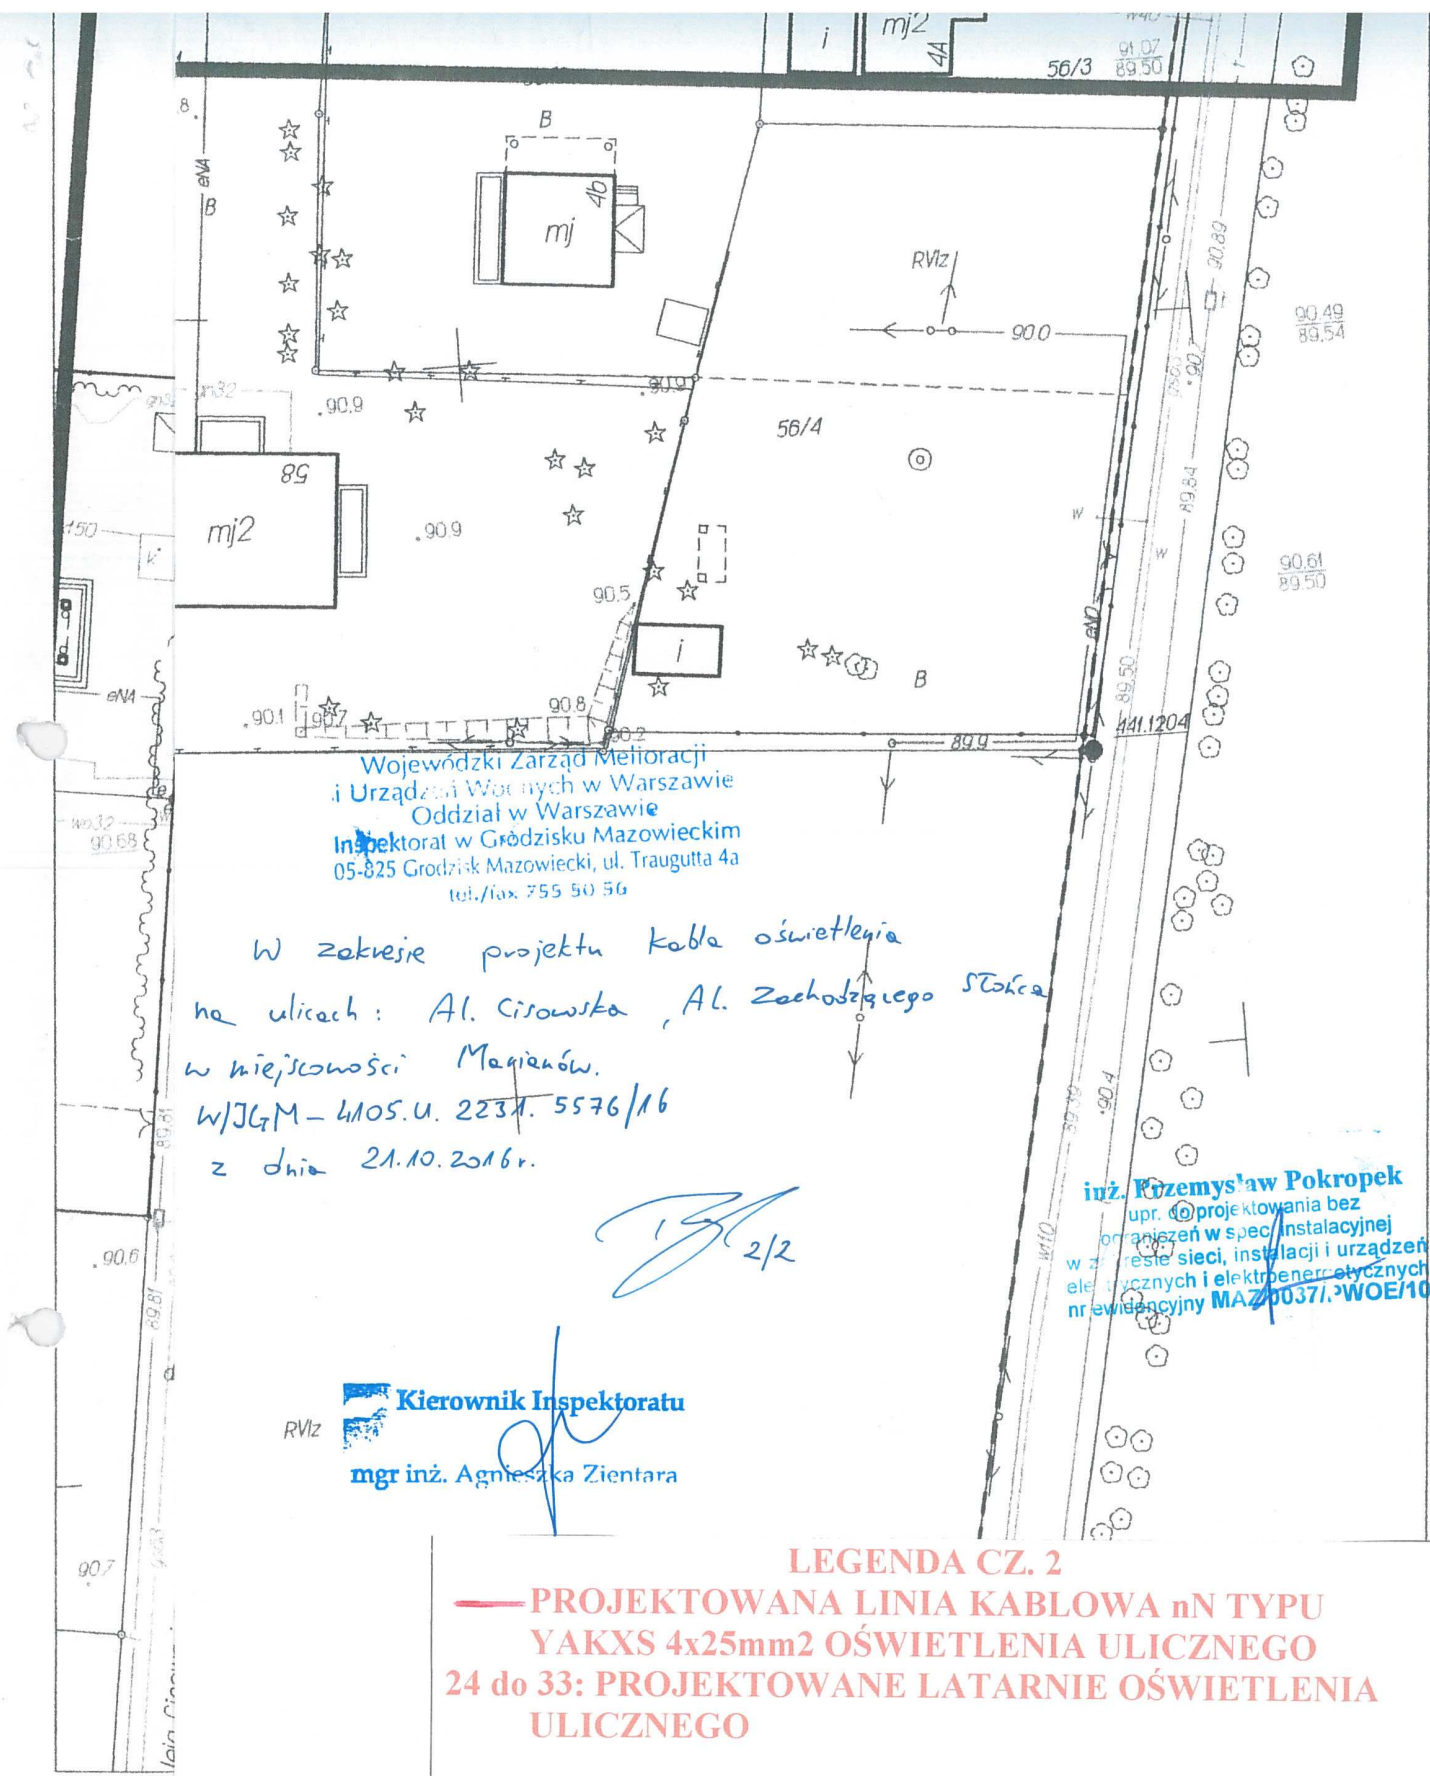 i
mj2
4A
56/3
91.07
89.50
8.
eNA
B
B
4b
mj
RVIz
90.0
90.89
90.49
89.54
90.9
56/4
58
mj2
90.9
150
k
w
w
89.84
90.61
89.50
90.5
i
eNO
B
89.50
eNA
90.1
90.7
90.8
90.2
89.9
441.1204
Wojewódzki Zarząd Melioracji
i Urządzeń Wodnych w Warszawie
Oddział w Warszawie
Inspektorat w Grodzisku Mazowieckim
05-825 Grodzisk Mazowiecki, ul. Traugutta 4a
tel./fax 755 50 56
wo32
90.68
W zakresie projektu kabla oświetlenia
na ulicach: Al. Cisowska, Al. Zachodzącego Słońca
w miejscowości Marianów.
W/JGM-4105.U. 2231. 5576/16
z dnia 21.10.2016r.
2/2
89.81
90.4
w110
90.6
89.81
inż. Przemysław Pokropek
upr. do projektowania bez
ograniczeń w spec. instalacyjnej
w zakresie sieci, instalacji i urządzeń
elektrycznych i elektroenergetycznych
nr ewidencyjny MAZ/0037/PWOE/10
RVIz
Kierownik Inspektoratu
mgr inż. Agnieszka Zientara
90.7
LEGENDA CZ. 2
PROJEKTOWANA LINIA KABLOWA nN TYPU
YAKXS 4x25mm2 OŚWIETLENIA ULICZNEGO
24 do 33: PROJEKTOWANE LATARNIE OŚWIETLENIA
ULICZNEGO